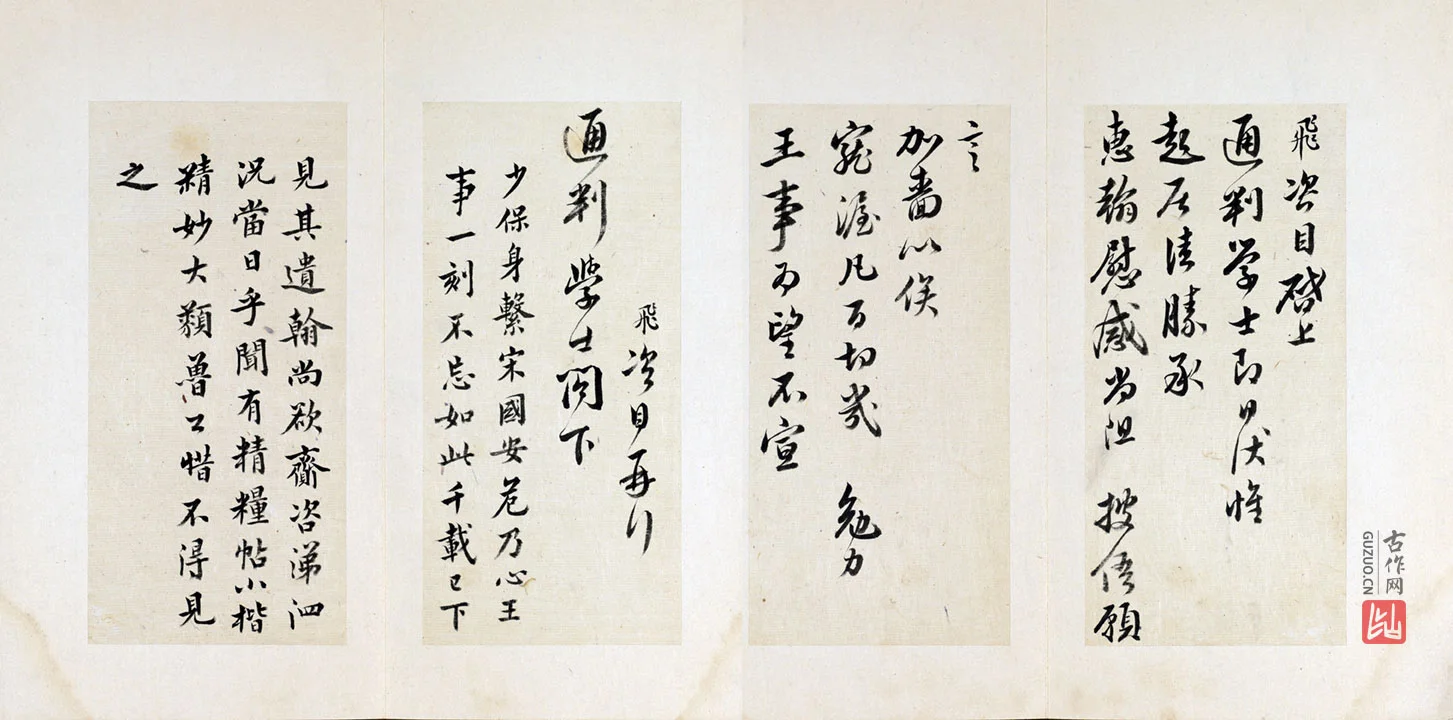 飛咨目啓上
通判学士即日伏惟
起居佳勝承
惠翰慰感尚阻 披倍願
言
加嗇以俟
寵渥凡百切幾 勉力
王事为望不宣
飛咨目再行
通判學士閤下
少保身繫宋國安危乃心王
事一刻不忘如此千載已下
見其遺翰尚欲齎咨涕泗
況當日乎聞有精糧帖小楷
精妙大類魯公惜不得見
之
古作网
GUZUO.CN